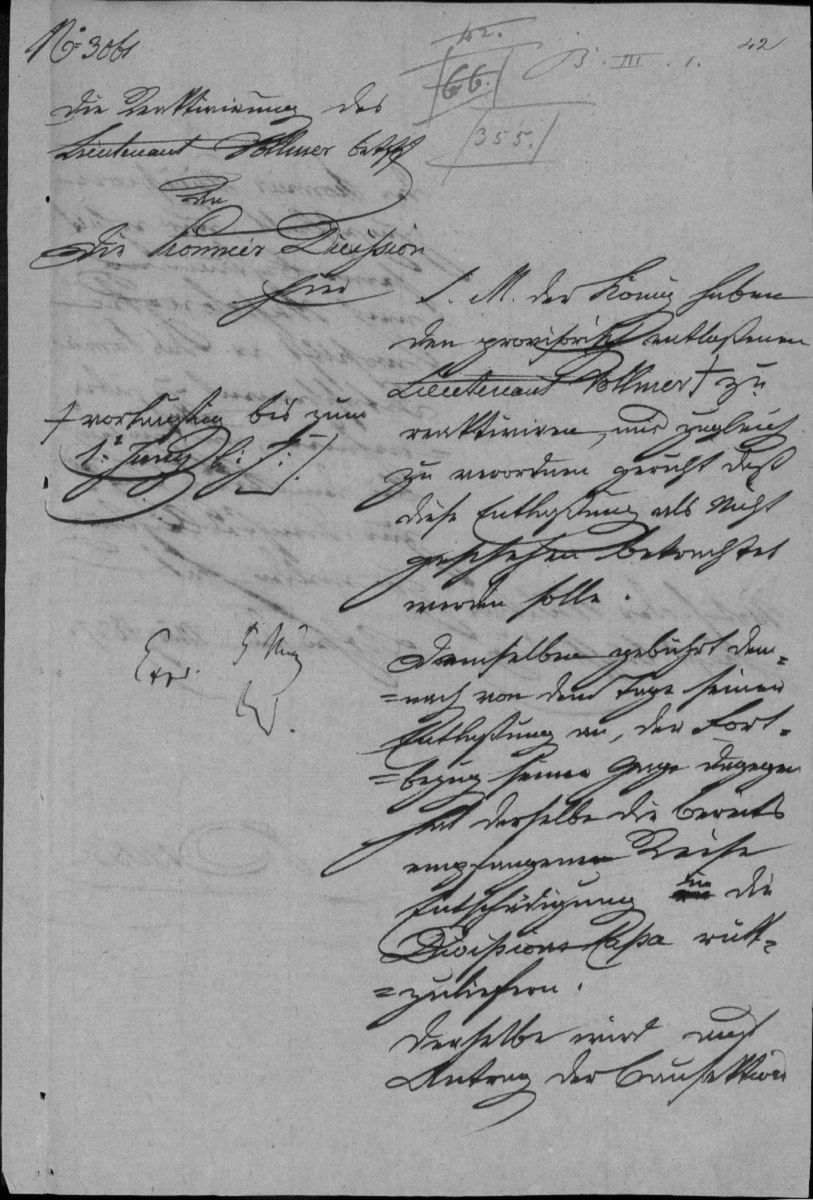 No 3061
42.
66.
B. III. 1.
42
355.
Die Reaktivirung des
Lieutenant Vollmer betfd
An
Die Pionnier Division
hier
S. M. der König haben
den provisorisch entlaßenen
Lieutenant Vollmer † zu
reaktiviren, und zugleich
zu verordnen geruht daß
diese Entlaßung als Nicht
geschehen betrachtet
werden solle.
† vorläufig bis zum
1. Juny l. J.
Exp. 5 May
Demselben gebührt dem=
=nach von dem Tage seiner
Entlaßung an, der Fort=
=bezug seiner Gage dagegen
hat derselbe die bereits
empfangene Reise
Entschädigung in die
Divisions Caßa rück=
=zuliefern.
Derselbe wird auf
Antrag der Bausektion